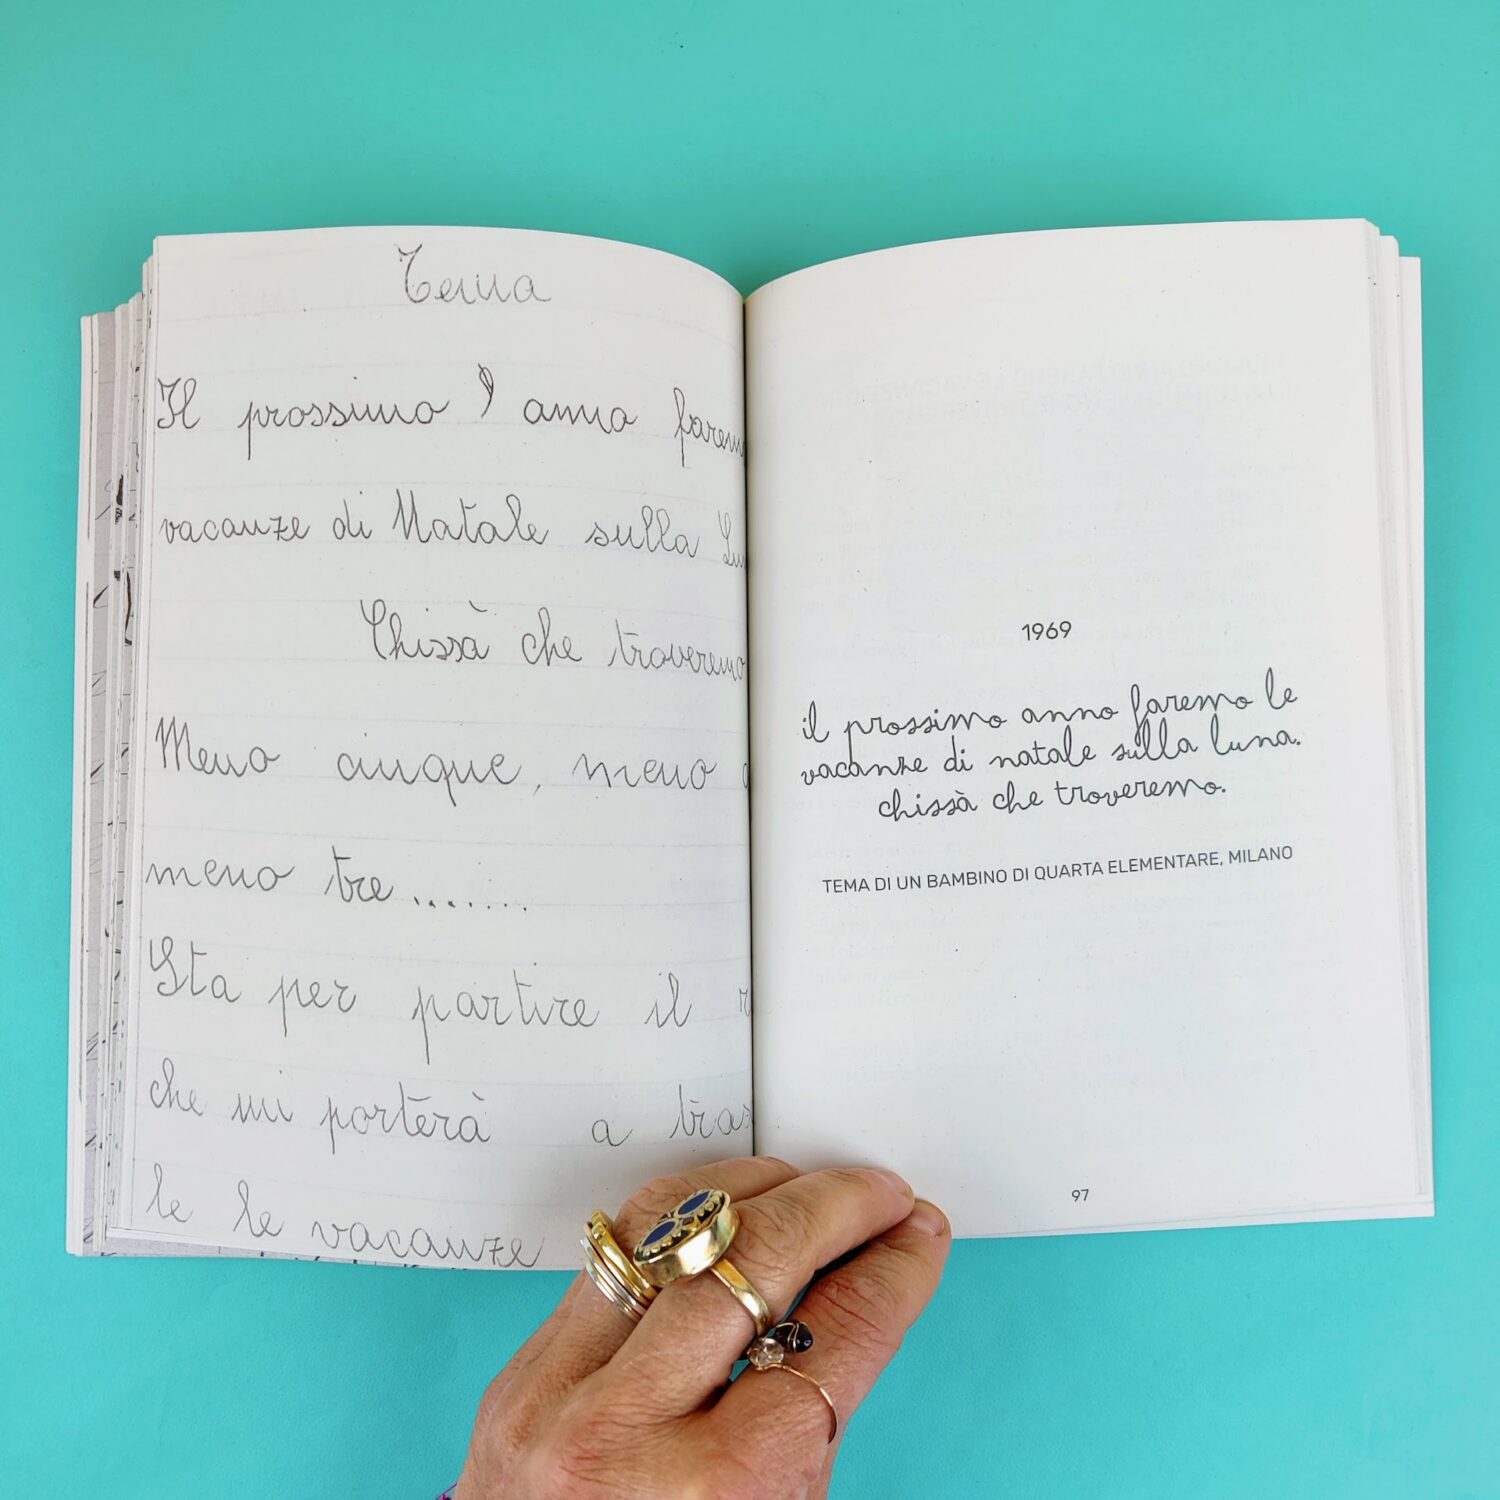 Tema
Il prossimo anno farem
vacanze di Natale sulla Lu
Chissà che troveremo
Meno cinque, meno
meno tre........
Sta per partire il
che mi porterà a tras
le le vacanze
1969
il prossimo anno faremo le
vacanze di natale sulla luna.
chissà che troveremo.
TEMA DI UN BAMBINO DI QUARTA ELEMENTARE, MILANO
97